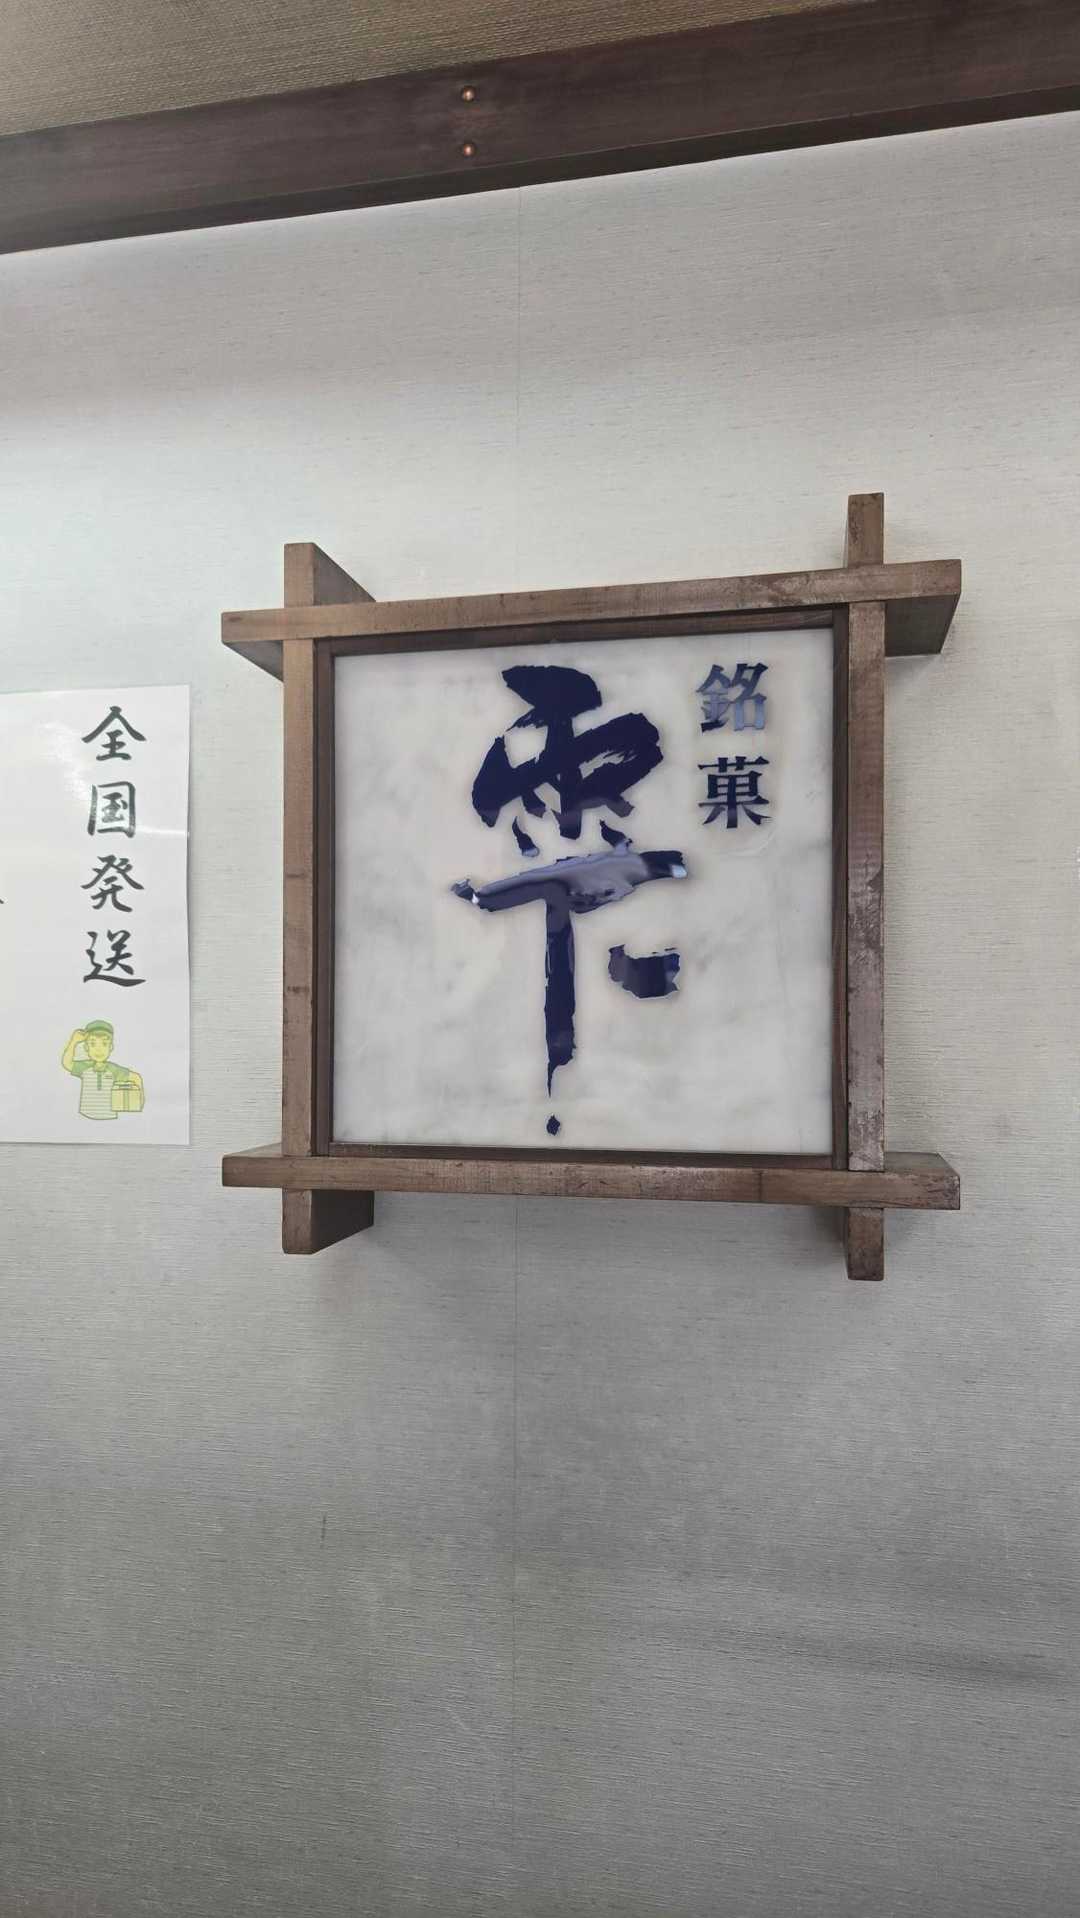 銘菓
雫
全国発送